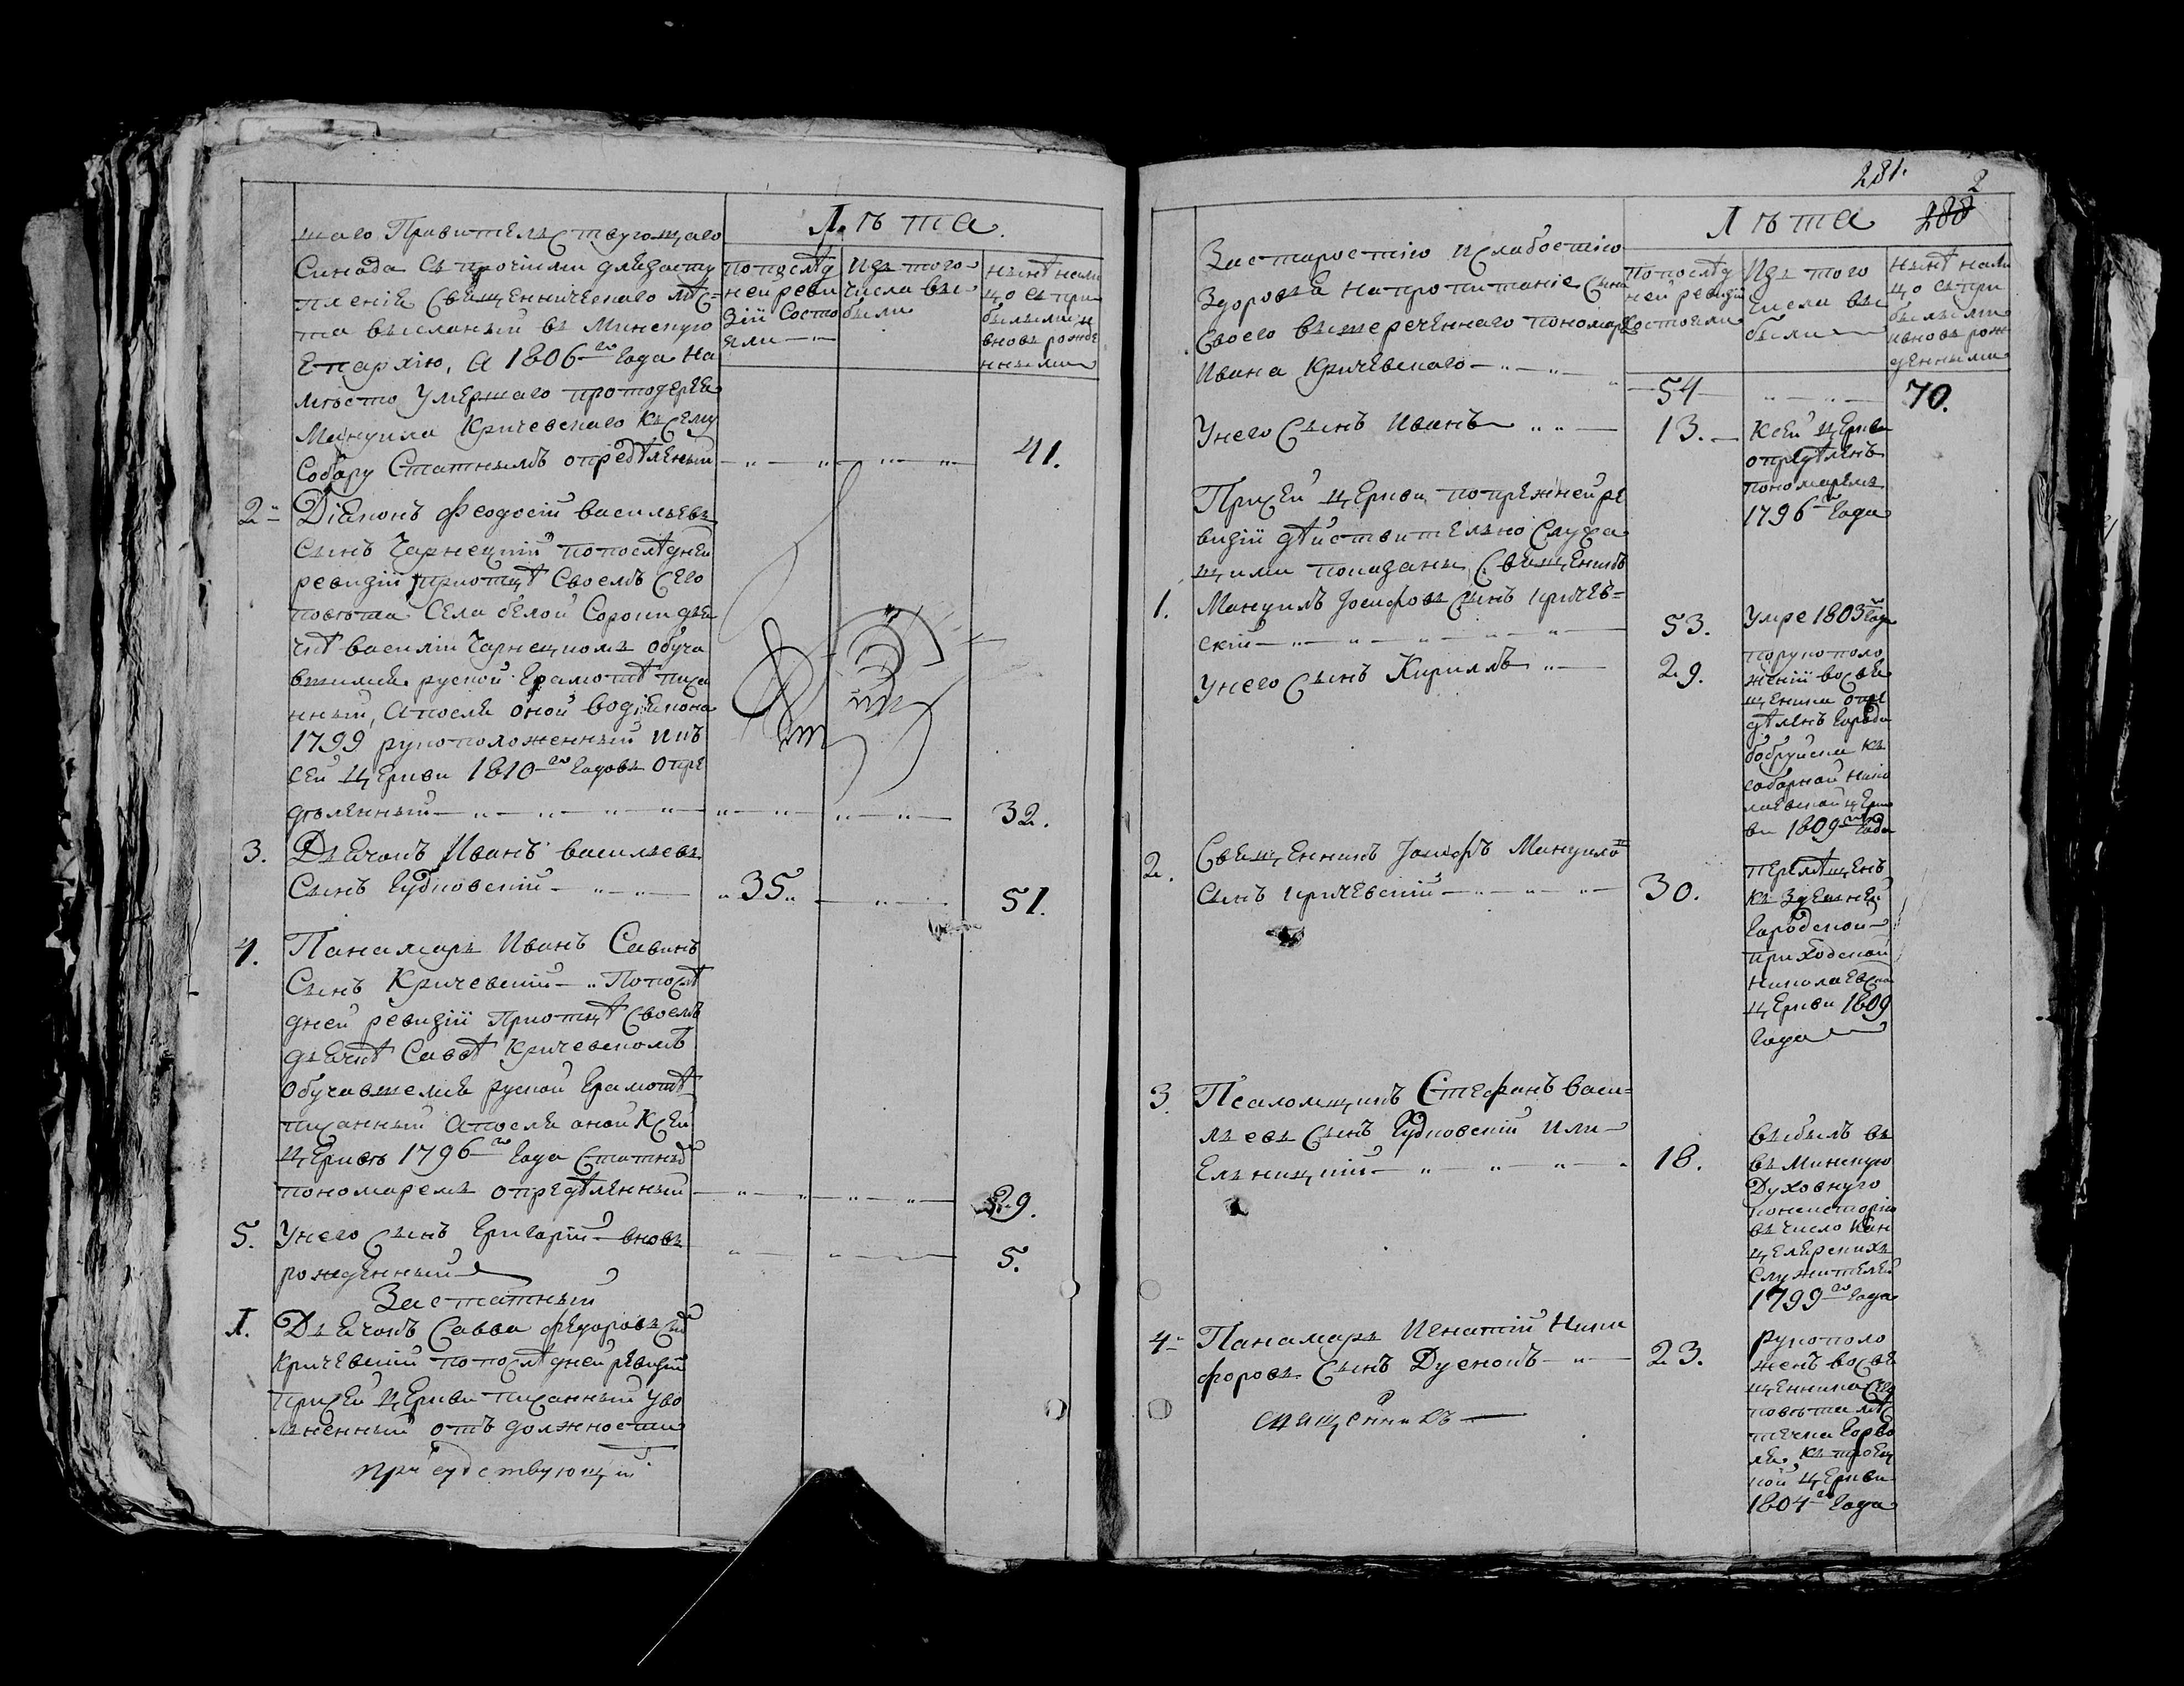 Лѣта.
По послѣд
ней реви
зіи состо
яли
Изъ того
числа вы
были
Нынѣ нали
цо съ при
былыми и
вновь рожде
нными
щаго Правительствующаго
Синода съ прочіими для засту
пленія Священническаго мѣс-
та высланый въ Минскую
Епархію, а 1806го Года на
мѣсто умершаго протоіерея
Мануила Кричевскаго къ сему
Собору Статнымъ опредѣленый 41.
2. Діаконъ Феодосій Васильевъ
Сынъ Чарнецкій по послѣдней
ревизіи при отцѣ своемъ сего
повѣта Села белой Сороки дья
чкѣ Василіи Чарнецкомъ обуча
вшимся руской Грамотѣ писа
нный, а после оной во діакона
1799 рукоположенный и къ
сей Церкви 1810го Годовъ опре
дѣленный 32.
3. Дьячокъ Иванъ Васильевъ
Сынъ Гудковскій 35. 51.
4. Панамарь Иванъ Савинъ
Сынъ Кричевскій По послѣ
дней ревизіи При отцѣ своемъ
дьячкѣ Саввѣ Кричевскомъ
обучавшемся руской Грамотѣ
писанный а после оной к сей
Церквѣ 1796го Года Статнымъ
пономаремъ опредѣленный 29.
5. У него Сынъ Григорій вновь
рожденный 5.
Застатный
1. Дьячокъ Савва Федоровъ сынъ
Кричевскій по послѣдней ревизіи
при сей Церкви писанный уво
лненный отъ должности
присудствующій
281.
2
280
Лѣта
По послѣд
ней ревизіи
состояли
Изъ того
числа вы
были
Нынѣ нали
цо съ при
былыми
и вновь рож
денными
За старостію и слабостію
Здоровья на пропитаніе Сына
своего вышереченнаго пономаря
Ивана Кричевскаго 54 70.
У него Сынъ Иванъ 13. К сей Церкви
опредѣленъ
пономаремъ
1796го Года
При сей Церкви по прежней ре
визіи дѣйствительно служа
щими показаны Священикъ
1. Мануилъ Іосифовъ Сынъ Кричев-
скій 53. Умре 1803го Года
У него Сынъ Кириллъ 29. По рукополо
женіи во Свя
щеника опре
дѣленъ Города
Бобруйска къ
соборной Нико
лаевской Церк
ви 1809го Года
2. Священникъ Іосифъ Мануиловъ
Сынъ Кричевскій 30. перемѣщенъ
къ здешней
Городской
приходской
Николаевской
Церкви 1809
Года
3. Псаломщикъ Стефанъ Васи-
льевъ Сынъ Гудковскій или
Ельницкій 18. Выбылъ въ
въ Минскую
Духовную
Консисторію
въ число Кан
целярскихъ
Служителей
1799го Года
4. Панамарь Игнатій Ники
форовъ Сынъ Дуенокъ 23. рукополо
женъ во Свя
щенника Сего
повѣта мѣс
течка Горво
ля къ троец
кой Церкви
1804го Года
священникъ